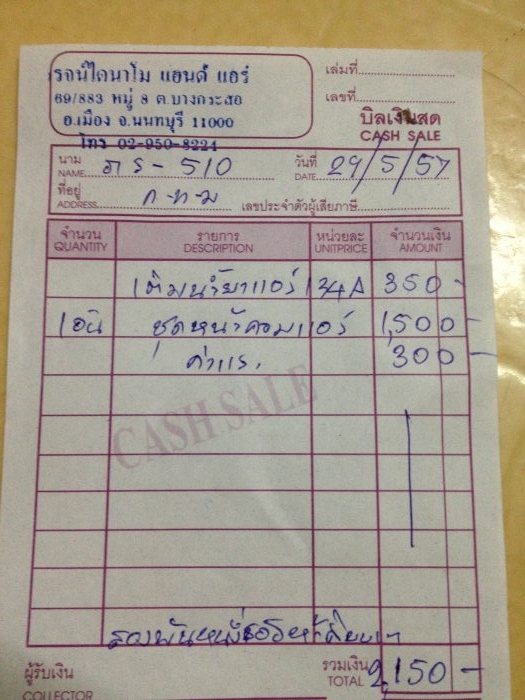 รจน์ไดนาโม แอนด์ แอร์
69/883 หมู่ 8 ต.บางกระสอ
อ.เมือง จ.นนทบุรี 11000
โทร 02-950-8224
เล่มที่
เลขที่
บิลเงินสด
CASH SALE
นาม NAME ภร-510
วันที่ DATE 29/5/57
ที่อยู่ ADDRESS ก.ท.ม
เลขประจำตัวผู้เสียภาษี
จำนวน รายการ หน่วยละ จำนวนเงิน
QUANTITY DESCRIPTION UNITPRICE AMOUNT
เติมน้ำยาแอร์ 134A 350-
1อัน ชุดหน้าคอมแอร์ 1,500-
ค่าแรง 300-
CASH SALE
สองพันหนึ่งร้อยห้าสิบบาท
ผู้รับเงิน รวมเงิน
COLLECTOR TOTAL 2,150-